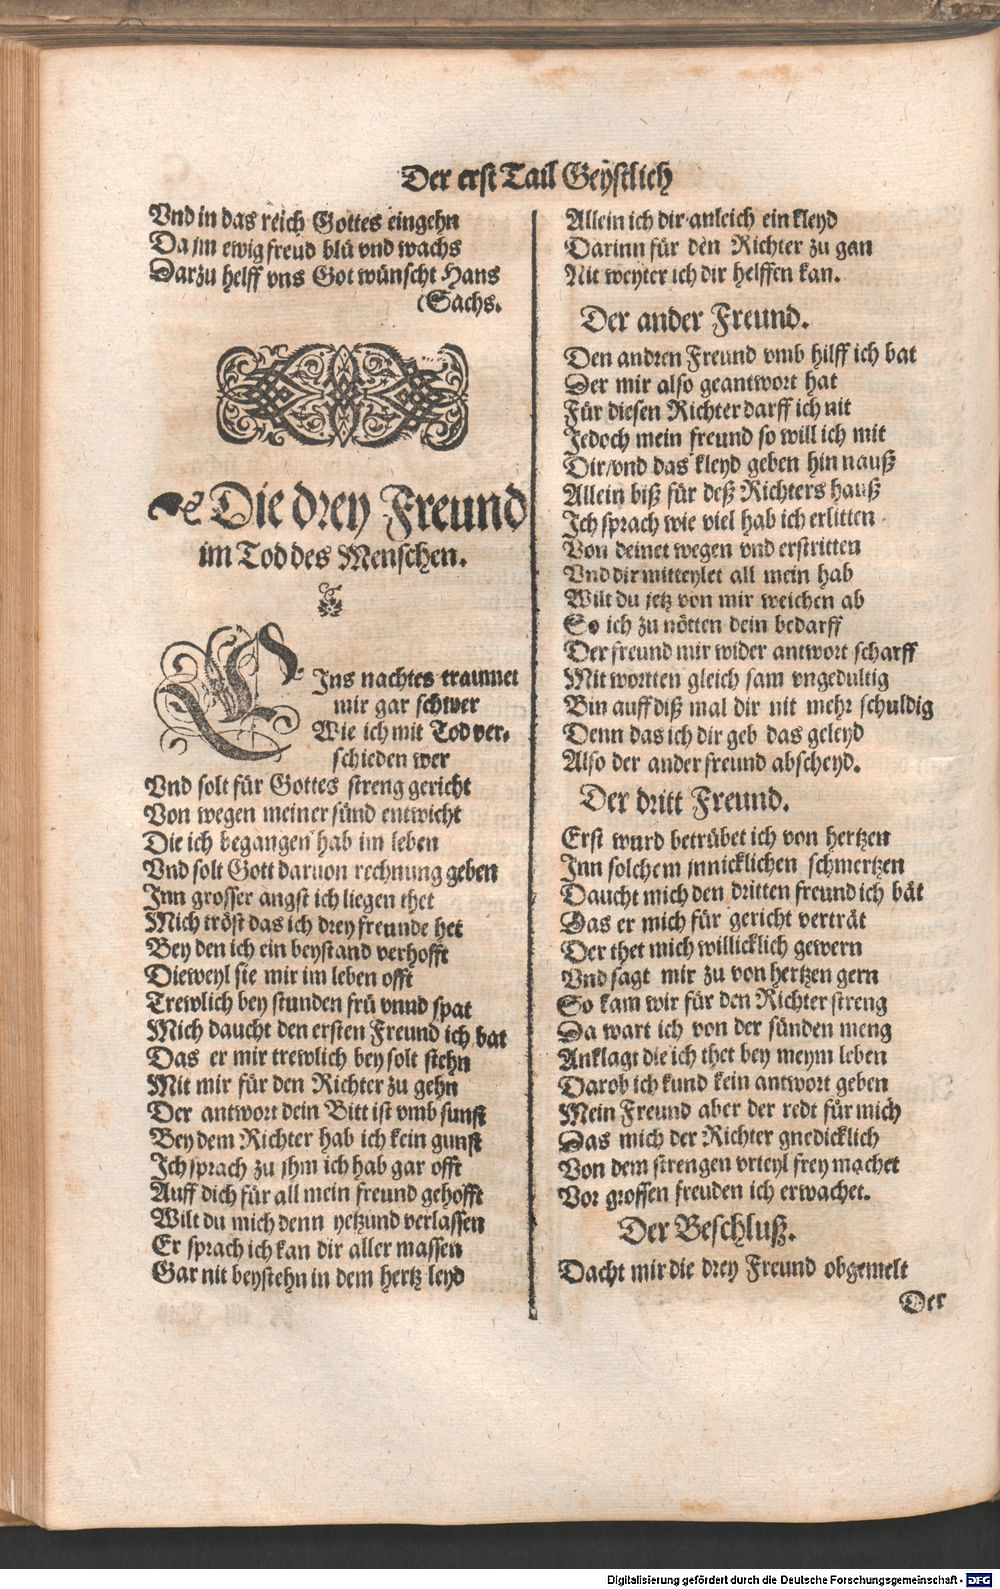 Der erst Tail Geystlich
Vnd in das reich Gottes eingehn
Da jm ewig freud blü vnd wachs
Darzu helff vns Got wünscht Hans
(Sachs.
Die drey Freund
im Tod des Menschen.
EIns nachtes traumet
mir gar schwer
Wie ich mit Tod ver-
schieden wer
Vnd solt für Gottes streng gericht
Von wegen meiner sünd entwicht
Die ich begangen hab im leben
Vnd solt Gott daruon rechnung geben
Inn grosser angst ich liegen thet
Mich tröst das ich drey freunde het
Bey den ich ein beystand verhofft
Dieweyl sie mir im leben offt
Trewlich bey stunden frü vnnd spat
Mich daucht den ersten Freund ich bat
Das er mir trewlich bey solt stehn
Mit mir für den Richter zu gehn
Der antwort dein Bitt ist vmb sunst
Bey dem Richter hab ich kein gunst
Ich sprach zu jhm ich hab gar offt
Auff dich für all mein freund gehofft
Wilt du mich denn yetzund verlassen
Er sprach ich kan dir aller massen
Gar nit beystehn in dem hertz leyd
Allein ich dir anleich ein kleyd
Darinn für den Richter zu gan
Nit weyter ich dir helffen kan.
Der ander Freund.
Den andren Freund vmb hilff ich bat
Der mir also geantwort hat
Für diesen Richter darff ich nit
Jedoch mein freund so will ich mit
Dir/vnd das kleyd geben hin nauß
Allein biß für deß Richters hauß
Ich sprach wie viel hab ich erlitten
Von deinet wegen vnd erstritten
Vnd dir mitteylet all mein hab
Wilt du jetz von mir weichen ab
So ich zu nötten dein bedarff
Der freund mir wider antwort scharff
Mit wortten gleich sam vngedultig
Bin auff diß mal dir nit mehr schuldig
Denn das ich dir geb das geleyd
Also der ander freund abscheyd.
Der dritt Freund.
Erst wurd betrübet ich von hertzen
Inn solchem innicklichen schmertzen
Daucht mich den dritten freund ich bät
Das er mich für gericht verträt
Der thet mich willicklich gewern
Vnd sagt mir zu von hertzen gern
So kam wir für den Richter streng
Da wart ich von der sünden meng
Anklagt die ich thet bey meym leben
Darob ich kund kein antwort geben
Mein Freund aber der redt für mich
Das mich der Richter gnedicklich
Von dem strengen vrteyl frey machet
Vor grossen freuden ich erwachet.
Der Beschluß.
Dacht mir die drey Freund obgemelt
Der
Digitalisierung gefördert durch die Deutsche Forschungsgemeinschaft - DFG